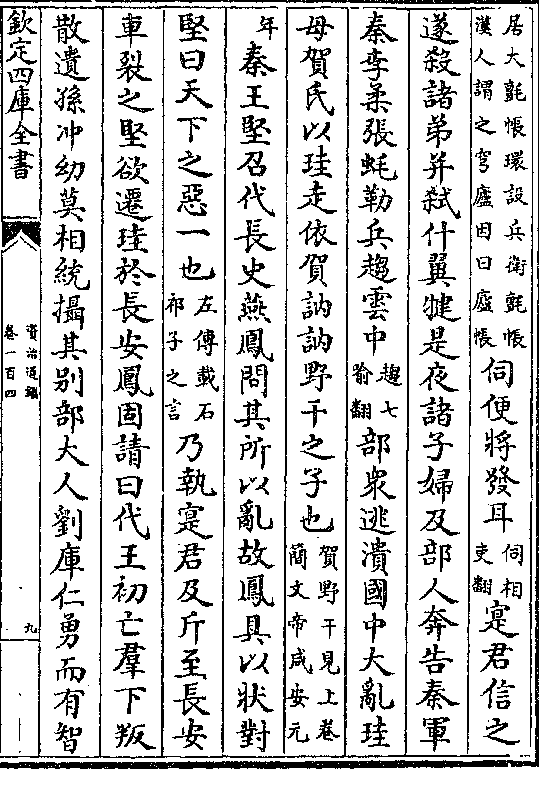 居大氈帳環設兵衛氈帳
漢人謂之穹廬因曰廬帳
伺便將發耳
伺相
吏翻
寔君信之
遂殺諸弟并弑什翼犍是夜諸子婦及部人奔告秦軍
秦李柔張蚝勒兵趨雲中
趨七
喻翻
部衆逃潰國中大亂珪
母賀氏以珪走依賀訥訥野干之子也
賀野干見上卷
簡文帝咸安元
年
秦王堅召代長史燕鳳問其所以亂故鳳具以狀對
堅曰天下之惡一也
左傳載石
祁子之言
乃執寔君及斤至長安
車裂之堅欲遷珪於長安鳳固請曰代王初亡羣下叛
散遺孫冲幼莫相統攝其别部大人劉庫仁勇而有智
欽定四庫全書
資治通鑑
卷一百四
九